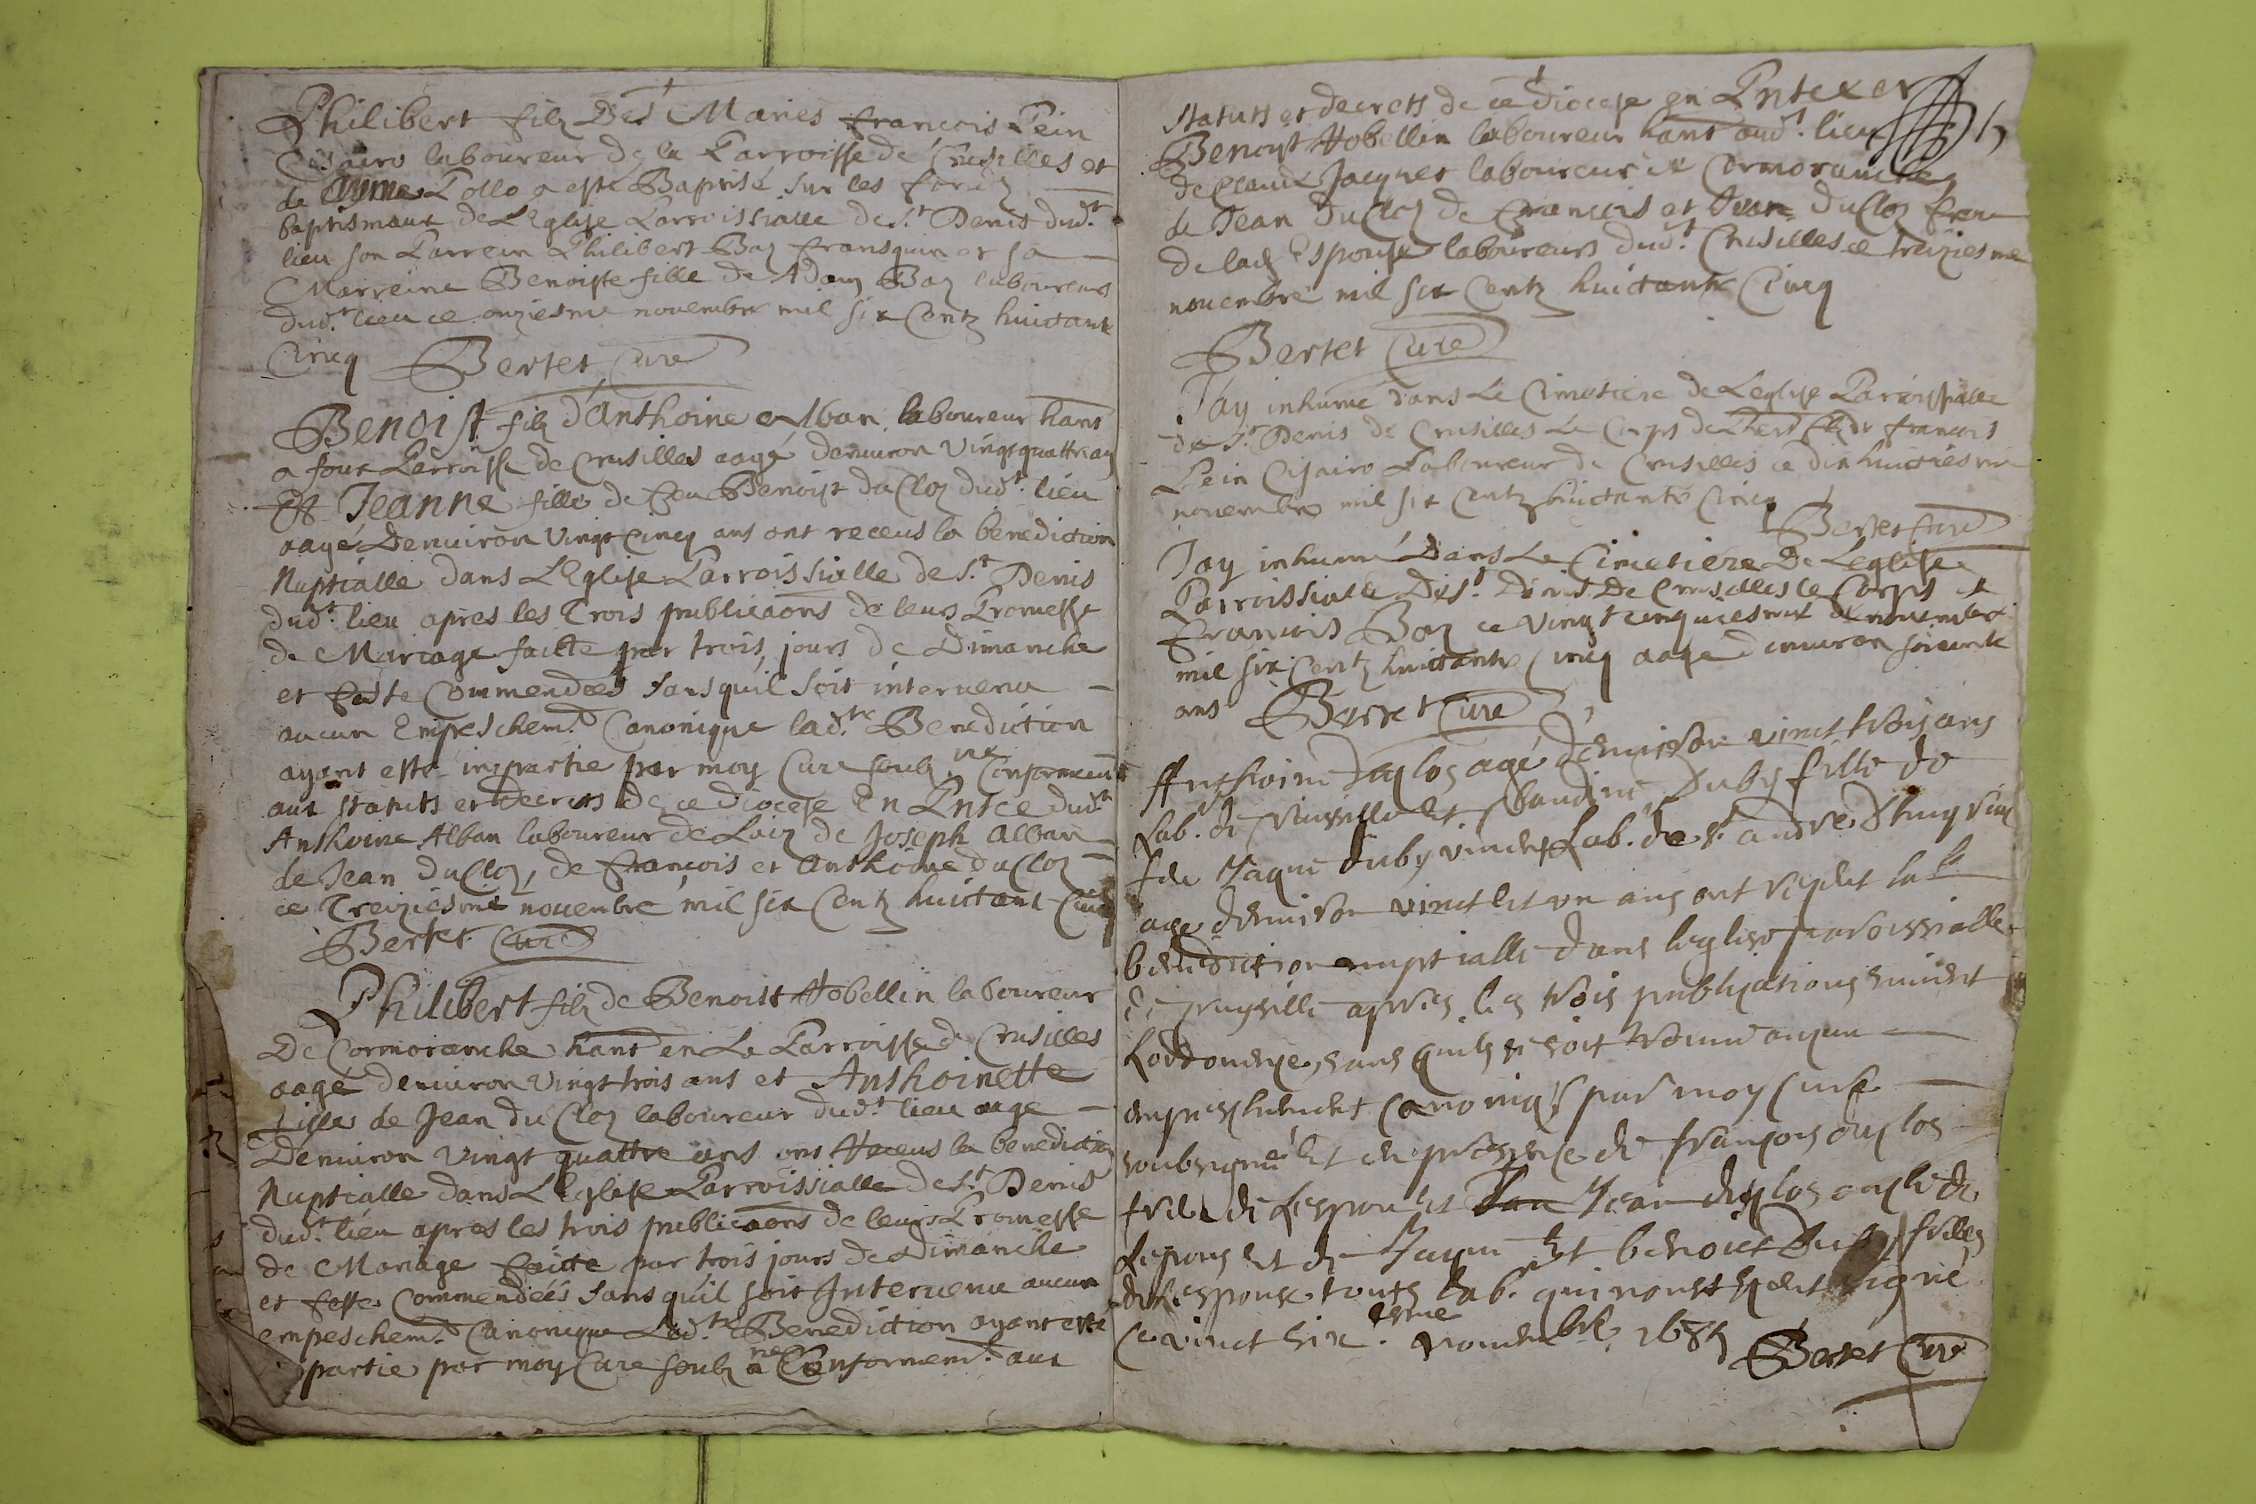 Philibert filz Des Maries francois Pein
Cisairo laboureur de la Parroisse de Crusilles et
de Ayme Pollo a este Baptisé sur les fondz
baptismaux de L'Eglise Parroissialle de St Denis dud.t
lieu son Parrein Philibert Boz fransquin et sa
Marreine Benoiste fille de Adam Boz laboureurs
dud.t lieu ce onziesme novembre mil six Centz huictante
Cincq Bertet Curé
Benoist filz d'Anthoine Alban laboureur hant
a four Parroisse de Crusilles aagé denviron Vingt quattre ans
Et Jeanne fille de feu Benoist du Cloz dud.t lieu
aagé Denviron Vingt Cincq ans ont receus la benediction
Nuptialle dans L'Eglise Parroissialle de St Denis
dud.t lieu apres les Trois publicaons de leurs Promesse
de Mariage faitte par trois jours de Dimanche
et feste Commendées sans quil soit intervenu
aucun Empeschem.t Canonique lad.te Benediction
ayant esté impartie par moy Curé soubz.ne Conformement
aux statuts et decrets de ce diocese En Pntce dud.t
Anthoine Alban laboureur de Loiz de Joseph Alban
de Jean du Cloz, de francois et Anthoine du Cloz
ce Treiziesme novembre mil six Centz huictant Cincq
Bertet Curé
Philibert filz de Benoist Hobellin laboureur
De Cormoranche hant en La Parroisse de Crusilles
aagé denviron vingt trois ans et Anthoinette
fille de Jean du Cloz laboureur dud.t lieu aage
Denviron vingt quattre ans ont Receus la benediction
Nuptialle dans L'Eglise Parroissialle de St Denis
dud.t lieu apres les trois publicaons de leurs Promesse
de Mariage faitte par trois jours de Dimanche
et feste Commendées sans qu'il soit Intervenu aucun
empeschem.t Canonique Lad.te Benediction ayant esté
partie par moy Curé soubz.ne Conformem.t aux
statuts et decrets de ce diocese en Pntce
Benoyst Hobellin laboureur hant aud.t lieu
de Claude Jacquet laboureur de Cormoranche
de Jean du Cloz de francois et Jean du Cloz frere
de lad. Espouse laboureurs dud.t Crusilles ce treiziesme
novembre mil six Centz huictante Cincq
Bertet Curé
J'ay inhumé dans Le Cimetiere de Leglise Parroissialle
de St Denis de Crusilles Le Corps de filz de francois
Pein Cisairo Laboureur de Crusilles ce dix huictiesme
novembre mil six Centz huictante Cincq
Bertet Curé
J'ay inhumé Dans Le Cimetiere De Leglise
Parroissialle De St. Denis De Crusilles le Corps de
francois Boz ce vingt cinquiesme de novembre
mil six Centz huictante Cincq aage denviron soixante
ans Bertet Curé
Anthoine Duclos agé denviron vinct trois ans
Lab. de Crusille et Claudine Duby fille de
feu Jaque Duby vivant Lab. de St andré
age denviron vinct et un ans ont reçeut la
benediction nuptialle dans leglise paroissialle
de Crusille apres les trois publications suivent
lordonence, sans quil si soit trouvé auqun
empeschement canoniq par moy curé
soubsigné Et en presence de françois Duclos
frere de Lespoux et Jean Duclos oncle de
Lepoux et de Jaque Et benoict Duby freres
de Lespouse touts Lab. qui nont sceu signé
Ce vinct six.iesme novembre 1685 Bertet Curé